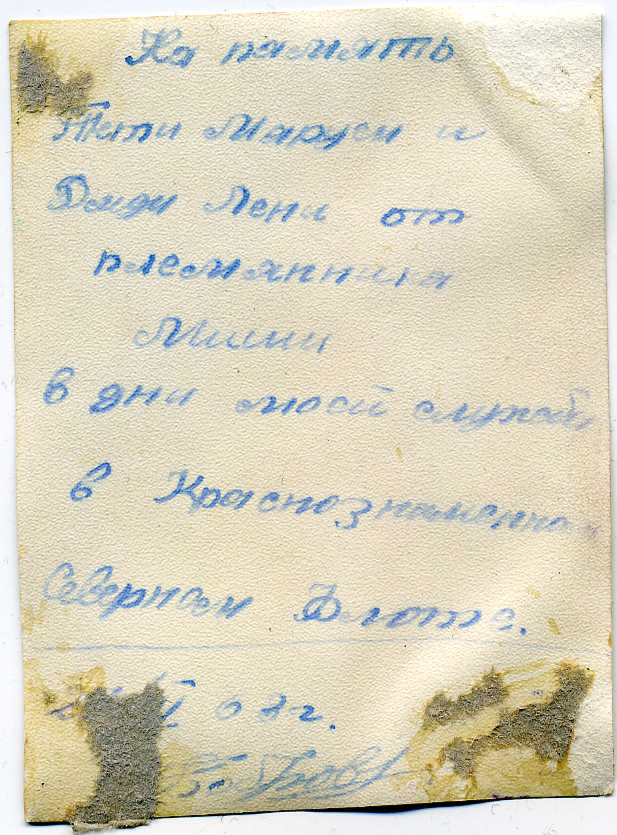 На память
Тети Маруси и
Дяди Лени от
племянника
Миши
в дни моей службы
в Краснознаменном
Северном Флоте.
г.